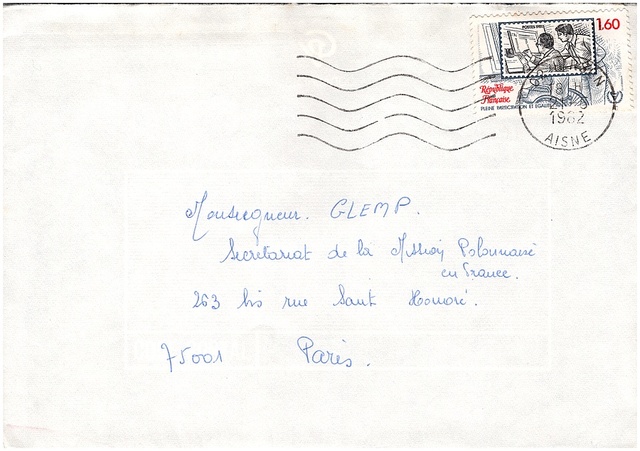 1.60
République
Française
PLEINE PARTICIPATION ET EGALITE
18 H
1982
AISNE
Monseigneur. GLEMP.
Secrétariat de la Mission Polonnaise
en France.
263 bis rue Saint Honoré.
75001 Paris.